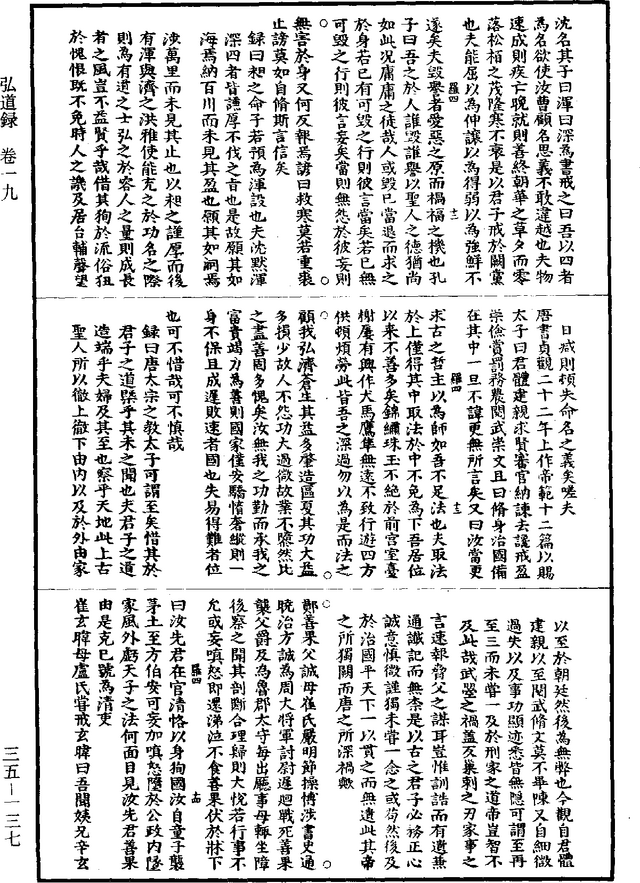 沈名其子曰渾曰深為書戒之曰吾以四者
為名欲使汝曹顧名思義不敢違越也夫物
速成則疾亡晚就則善終朝華之草夕而零
落松栢之茂隆寒不衰是以君子戒於闕黨
也夫能屈以為伸讓以為得弱以為強鮮不
遂矣夫毀譽者愛惡之原而禍福之機也孔
子曰吾之於人誰毀誰譽以聖人之德猶尚
如此況庸庸之徒哉人或毀已當退而求之
於身若已有可毀之行則彼言當矣若已無
可毀之行則彼言妄矣當則無怨於彼妄則
無害於身又何反報焉諺曰救寒莫若重裘
止謗莫如自脩斯言信矣
錄曰昶之命子若預為渾設也夫沈默渾
深四者皆謹厚不伐之旨也是故願其如
海焉納百川而未見其盈也願其如嗣焉
涉萬里而未見其止也以昶之謹厚而後
有渾與濟之洪雅使能充之於功名之際
則為有道之士弘之於容人之量則成長
者之風豈不益賢乎哉惜其狥於流俗狃
於愧恨既不免時人之譏及居台輔聲望
日咸則頓失命名之義矣嗟夫
唐書貞觀二十二年上作帝範十二篇以賜
太子曰君體建親求賢審官納諫去讒戒盈
崇儉賞罰務農閱武崇文且曰脩身治國備
在其中一旦不諱更無所言矣又曰汝當更
求古之哲主以為師如吾不足法也夫取法
於上僅得其中取法於中不免為下吾居位
以來不善多矣錦繡珠玉不絕於前宮室臺
榭屢有興作犬馬鷹隼無遠不致行遊四方
供頓煩勞此皆吾之深過勿以為是而法之
顧我弘濟蒼生其益多肇造區夏其功大益
多損少故人不怨功大過微故業不隳然比
之盡善固多愧矣汝無我之功勤而承我之
富貴竭力為善則國家僅安驕惰奢縱則一
身不保且成遲敗速者國也失易得難者位
也可不惜哉可不慎哉
錄曰唐太宗之教太子可謂至矣惜其於
君子之道槩乎其未之聞也夫君子之道
造端乎夫婦及其至也察乎天地此上古
聖人所以徹上徹下由內以及於外由家
以至於朝廷然後為無弊也今觀自君體
建親以至閱武脩文莫不畢陳又自細微
過失以及事功顯迹悉皆無隱可謂至再
至三而未甞一及於刑家之道帝豈智不
及此哉武曌之禍蓋巢剌之刃家事之
言速報脅父之謀耳豈惟訓誥而有遺兼
通讖記而無柰是以古之君子必務正心
誠意慎微謹獨未甞一念之或苟然後及
於治國平天下一以貫之而無遺此其帝
之所獨闕而唐之所深禍歟
鄭善果父誠母崔氏嚴明節操博涉書史通
曉治方誠為周大將軍討尉遲迴戰死善果
襲父爵及為魯郡太守每出廳事母輒坐障
後察之聞其剖斷合理歸則大悅若行事不
允或妄嗔怒即還涕泣不食善果伏於牀下
曰汝先君在官清恪以身狥國汝自童子襲
茅土至方伯安可妄加嗔怒墮於公政內墜
家風外虧天子之法何面目見汝先君善果
由是克己號為清吏
崔玄暐母盧氏甞戒玄暐曰吾聞姨兄辛玄
弘道録　卷一九
三五－一三七
羅四
十二
羅四
十三
羅四
十四